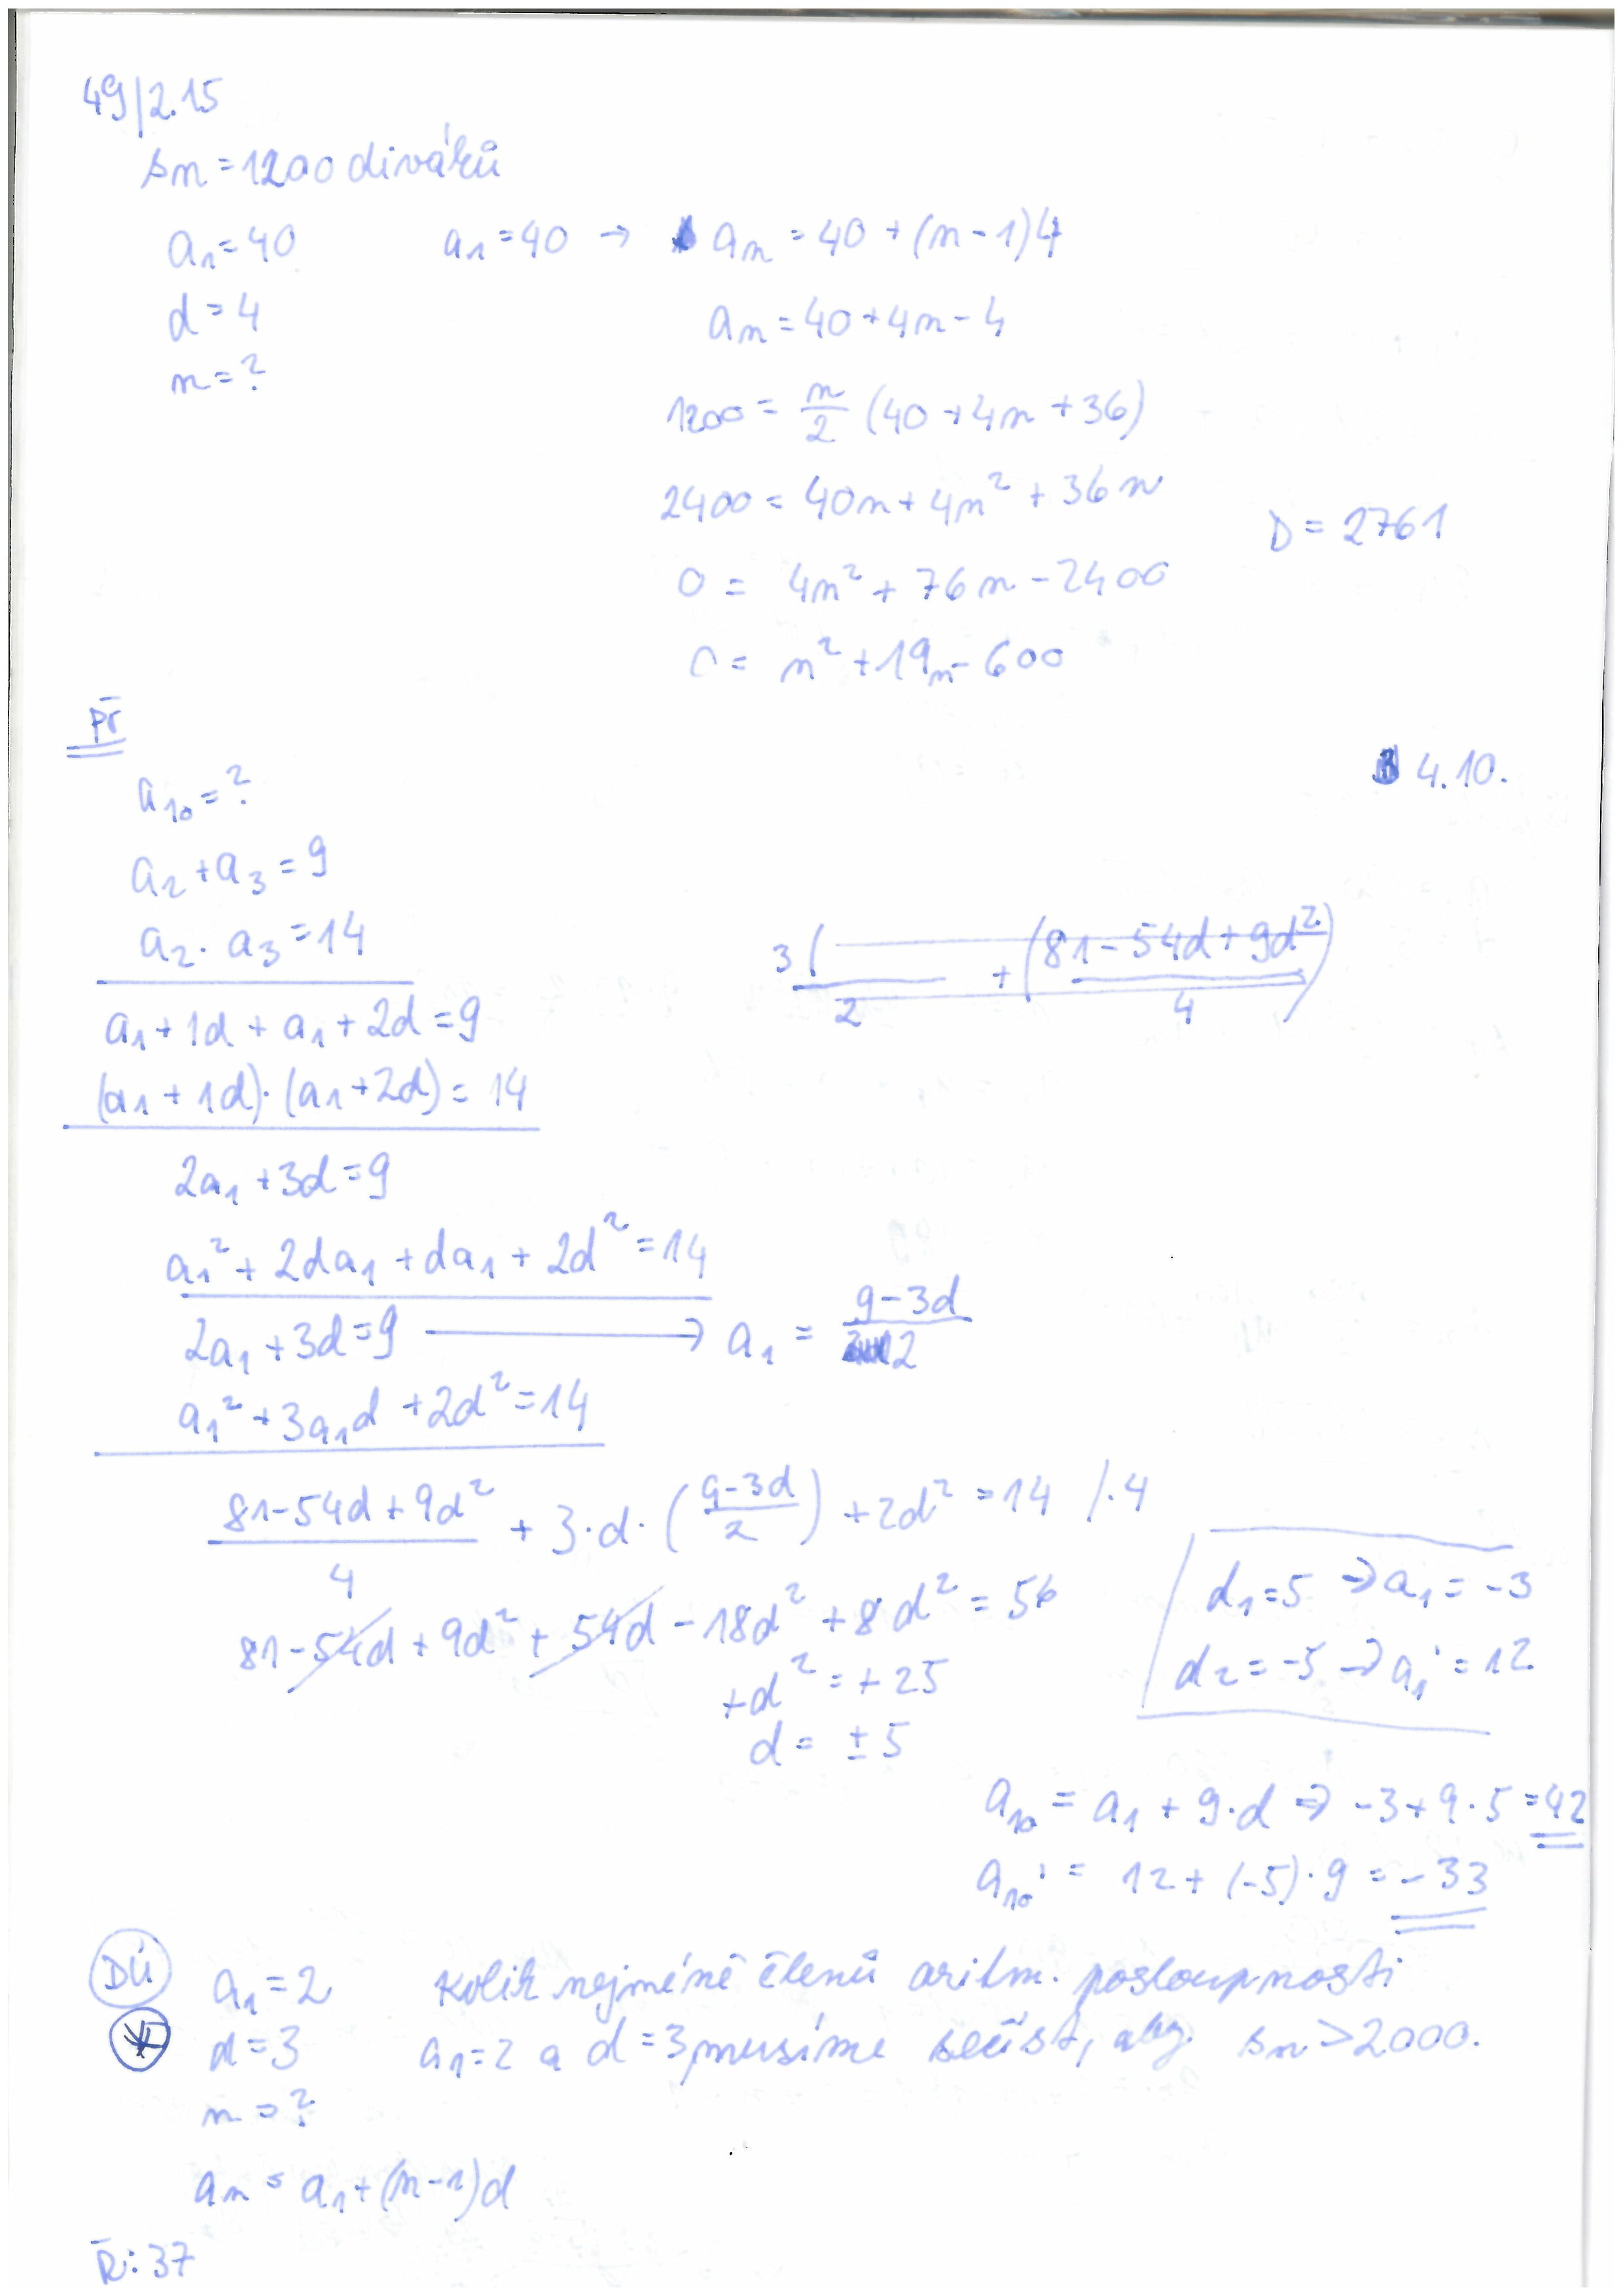 49/2.15
sn = 1200 diváků
a₁ = 40 a₁ = 40 → an = 40 + (n - 1)4
d = 4 an = 40 + 4n - 4
n = ?
1200 = n/2 (40 + 4n + 36)
2400 = 40n + 4n² + 36n D = 2761
0 = 4n² + 76n - 2400
0 = n² + 19n - 600
Př
4.10.
a₁₀ = ?
a₂ + a₃ = 9
a₂ · a₃ = 14
3( /2 + (81 - 54d + 9d²)/4
a₁ + 1d + a₁ + 2d = 9
(a₁ + 1d) · (a₁ + 2d) = 14
2a₁ + 3d = 9
a₁² + 2da₁ + da₁ + 2d² = 14
2a₁ + 3d = 9 → a₁ = (9 - 3d)/2
a₁² + 3a₁d + 2d² = 14
(81 - 54d + 9d²)/4 + 3 · d · ((9 - 3d)/2) + 2d² = 14 /·4
81 - 54d + 9d² + 54d - 18d² + 8d² = 56
+d² = +25
d = ±5
d₁ = 5 → a₁ = -3
d₂ = -5 → a₁' = 12
a₁₀ = a₁ + 9 · d ⇒ -3 + 9 · 5 = 42
a₁₀' = 12 + (-5) · 9 = -33
DÚ a₁ = 2 Kolik nejméně členů aritm. posloupnosti
d = 3 a₁ = 2 a d = 3 musíme sečíst, aby sn > 2000.
n = ?
an = a₁ + (n - 1)d
Ř: 37